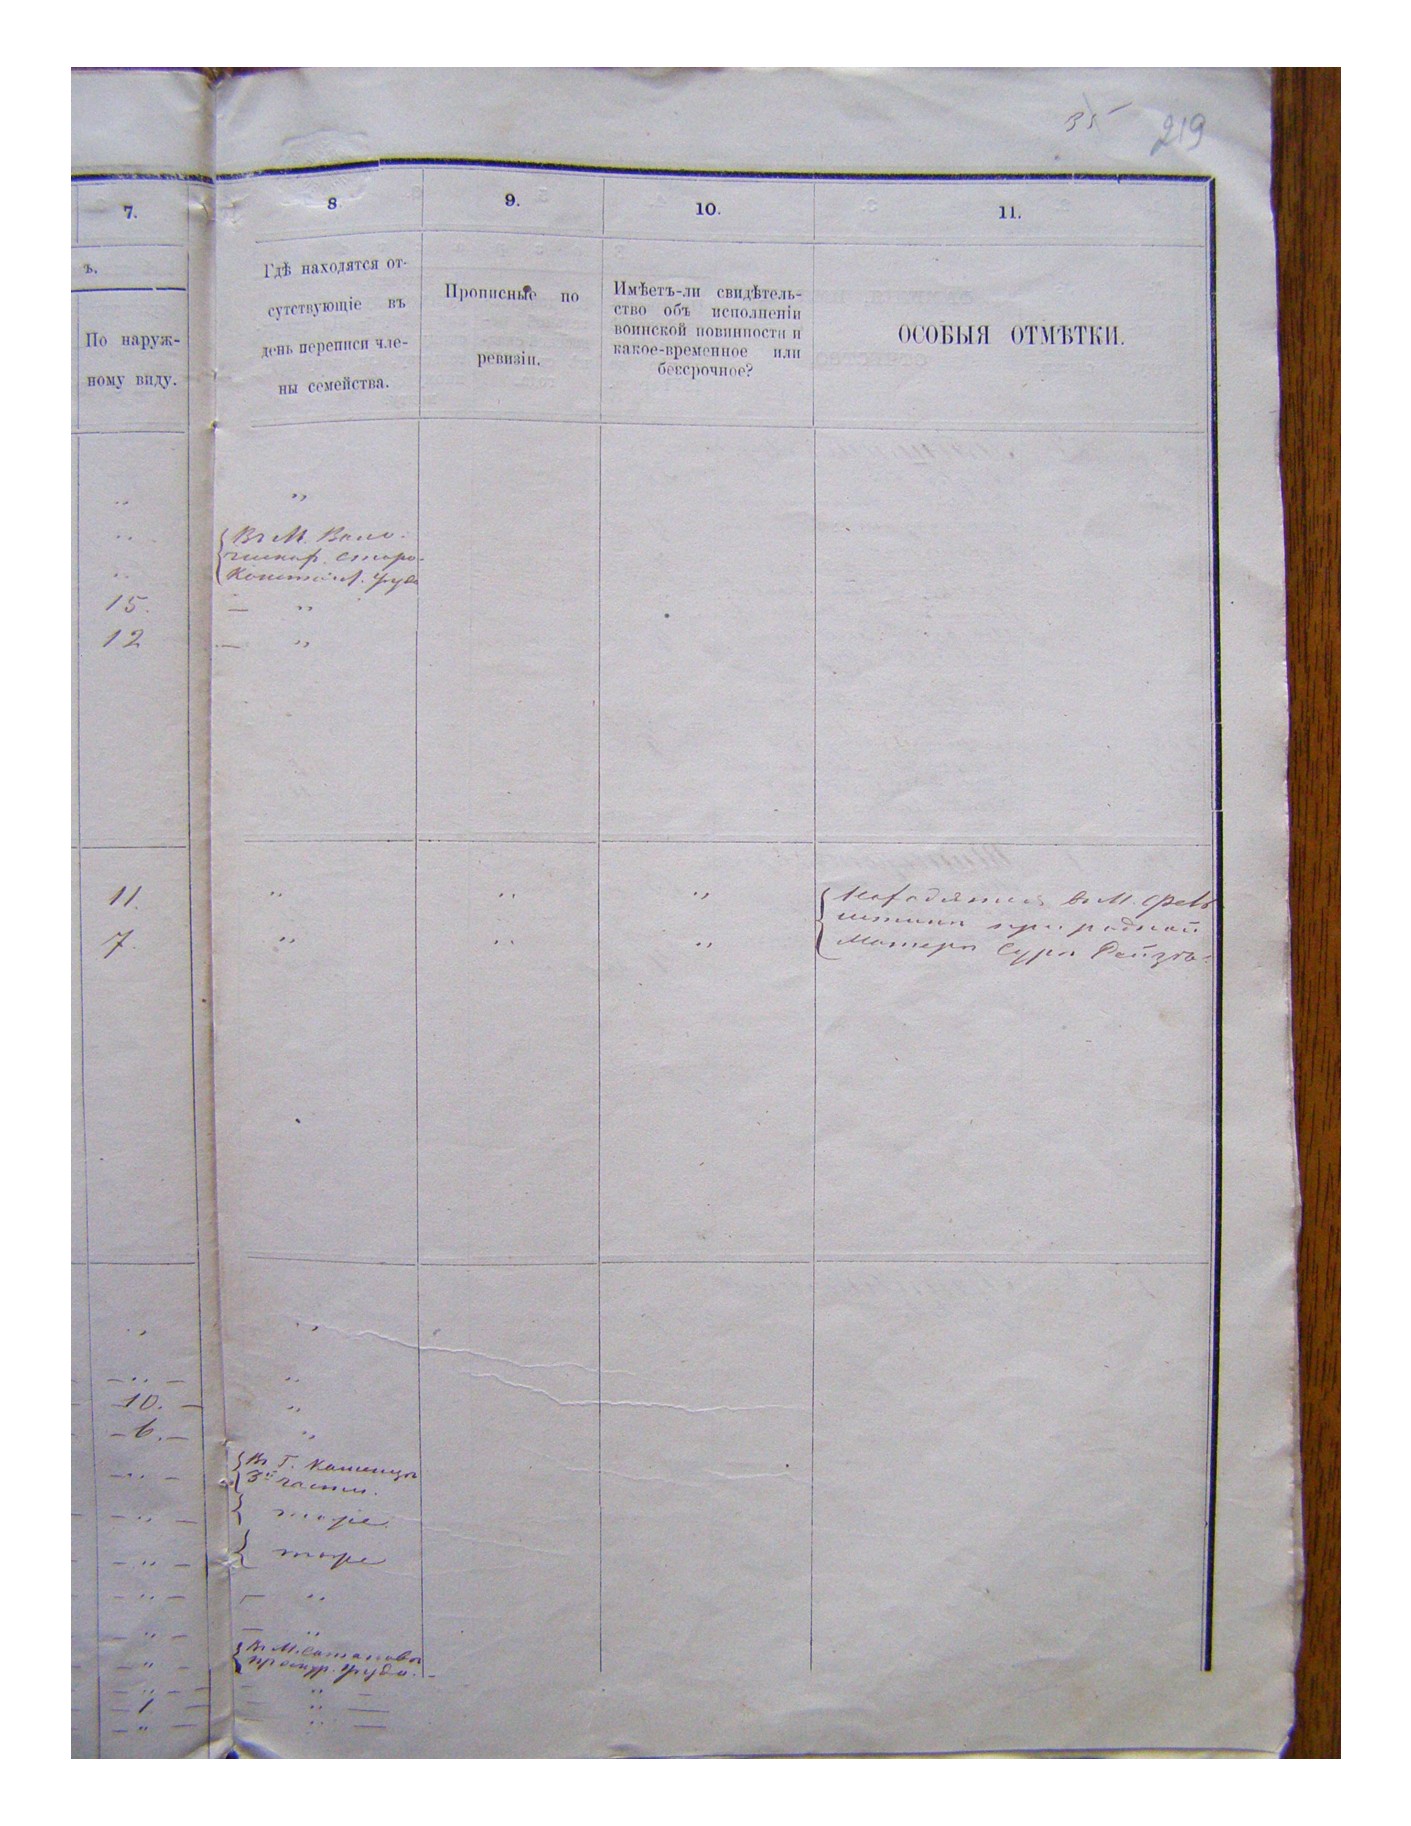 35 219
7. 8 9. 10. 11.
ъ.
По наруж-
ному виду.
Гдѣ находятся от-
сутствующіе въ
день переписи чле-
ны семейства.
Прописные по
ревизіи.
Имѣетъ-ли свидѣтель-
ство объ исполненіи
воинской повинности и
какое-временное или
бессрочное?
ОСОБЫЯ ОТМѢТКИ.
„ „
„ Въ М. Воло-
чискахъ Старо-
„ Констант. уѣзда
15. — „
12 — „
11. „ „ „ Находятся въ М. Фель
штинѣ при родной
7. „ „ „ матери Сура Рейзѣ.
„ „
— „ — „
10. — „
— 6. — „
Въ Г. Каменцѣ
— „ — 3й части.
— „ — тоже
— „ — тоже
— „ — — „
— „ — — „
Въ М. Сатановѣ
— „ — Проскур. уѣзда. —
— „ — — „ —
— 1 — — „ —
— „ — — „ —